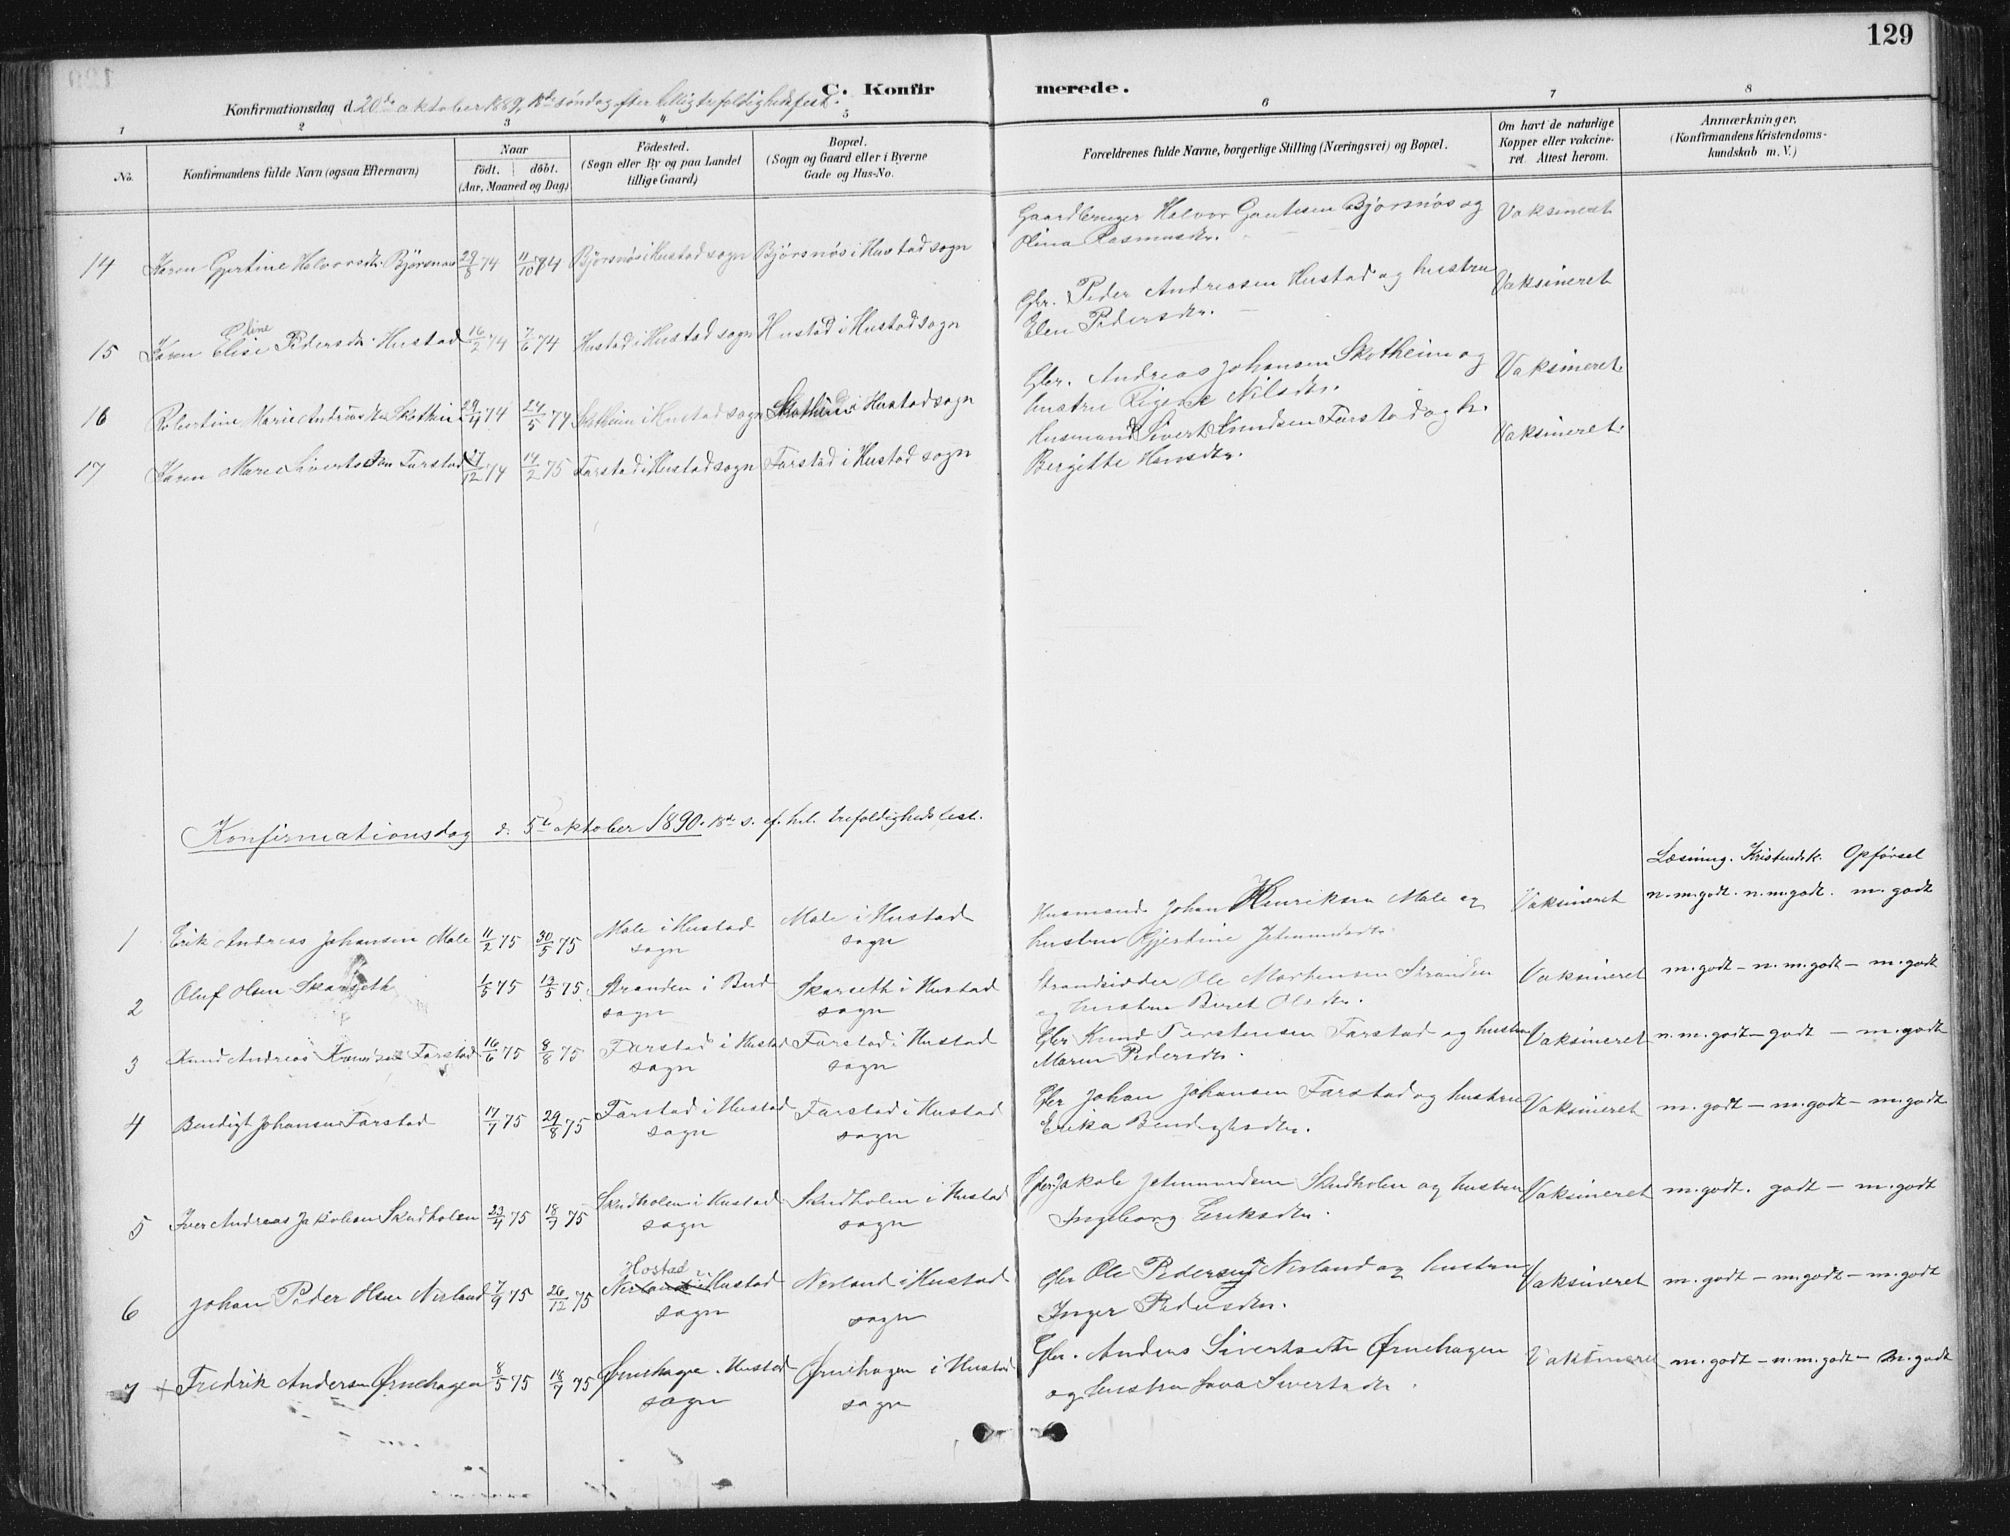 129
C. Konfirmerede.
Konfirmationsdag d. 20de oktober 1889, 18de søndag efter hellig trefoldighedsfest.
1 2 3 4 5 6 7 8
No. Konfirmandens fulde Navn (ogsaa Efternavn) Naar født. døbt. (Aar, Maaned og Dag) Fødested. (Sogn eller By og paa Landet tillige Gaard) Bopæl. (Sogn og Gaard eller i Byerne Gade og Hus-No. Forældrenes fulde Navne, borgerlige Stilling (Næringsvei) og Bopæl. Om havt de naturlige Kopper eller vakcineret. Attest herom. Anmærkninger. (Konfirmandens Kristendomskundskab m. V.)
14 Karen Gjertine Halvorsdtr. Bjørsnøs 29/8 74 11/10 74 Bjørsnøs i Hustad sogn Bjørsnøs i Hustad sogn Gaardbruger Halvor Gautesen Bjørsnøs og Olina Rasmusdtr. Vaksineret
15 Karen Elise line Pedersdtr. Hustad 16/2 74 7/6 74 Hustad i Hustad sogn Hustad i Hustad sogn Gbr. Peder Andreasen Hustad og hustru Elen Pedersdtr. Vaksineret
16 Robertine Marie Andreasdtr Skothei 29/4 74 24/5 74 Skotheim i Hustad sogn Skotheim i Hustad sogn Gbr. Andreas Johansen Skotheim og hustru Nilsdtr. Vaksineret
17 Karen Marie Sivertsdtr Farstad 27/12 74 14/2 75 Farstad i Hustad sogn Farstad i Hustad sogn Husmand Sivert Knudsen Farstad og h. Bergitte Hansdtr. Vaksineret
Konfirmationsdag d. 5te oktober 1890. 18de s. ef. hel. trefoldighedsfest.
Læsning. Kristendsk. Opførsel
1 Erik Andreas Johansen Male 11/2 75 30/5 75 Male i Hustad sogn Male i Hustad sogn Husmand Johan Henriksen Male og hustru Gjertine Jetmundsdtr. Vaksineret n.m.godt. n.m.godt. m.godt
2 Oluf Olsen Skarseth 1/5 75 13/5 75. Stranden i Bud sogn Skarseth i Hustad sogn Strandsidder Ole Mortensen Stranden og hustru Beret Olsdtr. Vaksineret m.godt - n.m.godt - m.godt
3 Knud Andreas Knudsen Farstad 16/6 75 8/8 75 Farstad i Hustad sogn Farstad i Hustad sogn Gbr Knud Torstensen Farstad og hustru Maren Pedersdtr. Vaksineret n.m.godt - godt - m.godt
4 Bendigt Johansen Farstad 17/7 75 29/8 75 Farstad i Hustad sogn Farstad i Hustad sogn Gbr Johan Johansen Farstad og hustru Erika Bendigtsdtr. Vaksineret m.godt - m.godt - m.godt
5 Iver Andreas Jakobsen Skudholen 23/4 75 18/7 75 Skudholen i Hustad sogn Skudholen i Hustad sogn Gbr. Jakob Jetmundsen Skudholen og hustru Ingeborg Eriksdtr. Vaksineret m.godt. godt - m.godt
6 Johan Peder Olsen Nerland 7/9 75 26/12 75 Hostad Nerland i Hustad sogn Nerland i Hustad sogn Gbr Ole Pedersen Nerland og hustru Inger Pedersdtr. Vaksineret m.godt - m.godt - m.godt
7 + Fredrik Andersen Ørnehagen 8/5 75 18/7 75 Ørnehagen i Hustad sogn Ørnehagen i Hustad sogn Gbr. Anders Sivertsen Ørnehagen og hustru Sivertsdtr. Vaksineret m.godt - n.m.godt - m.godt